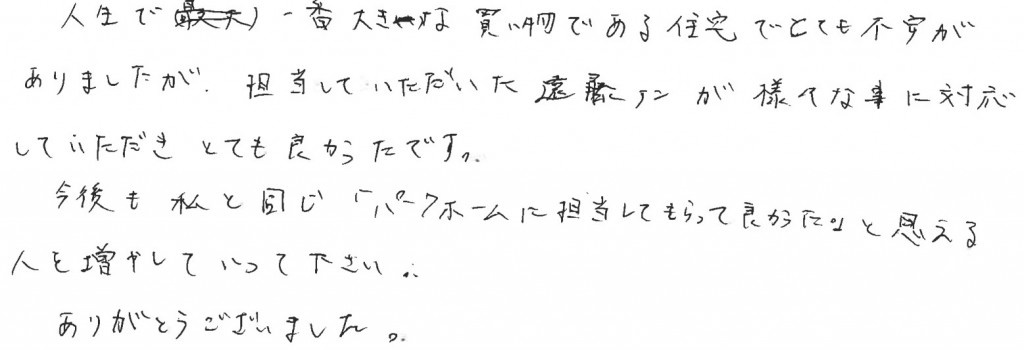 人生で 一番大きな買い物である住宅でとても不安が
ありましたが、担当していただいた遠藤サンが様々な事に対応
していただきとても良かったです。
今後も私と同じ「パークホームに担当してもらって良かった。」と思える
人を増やしていって下さい。
ありがとうございました。